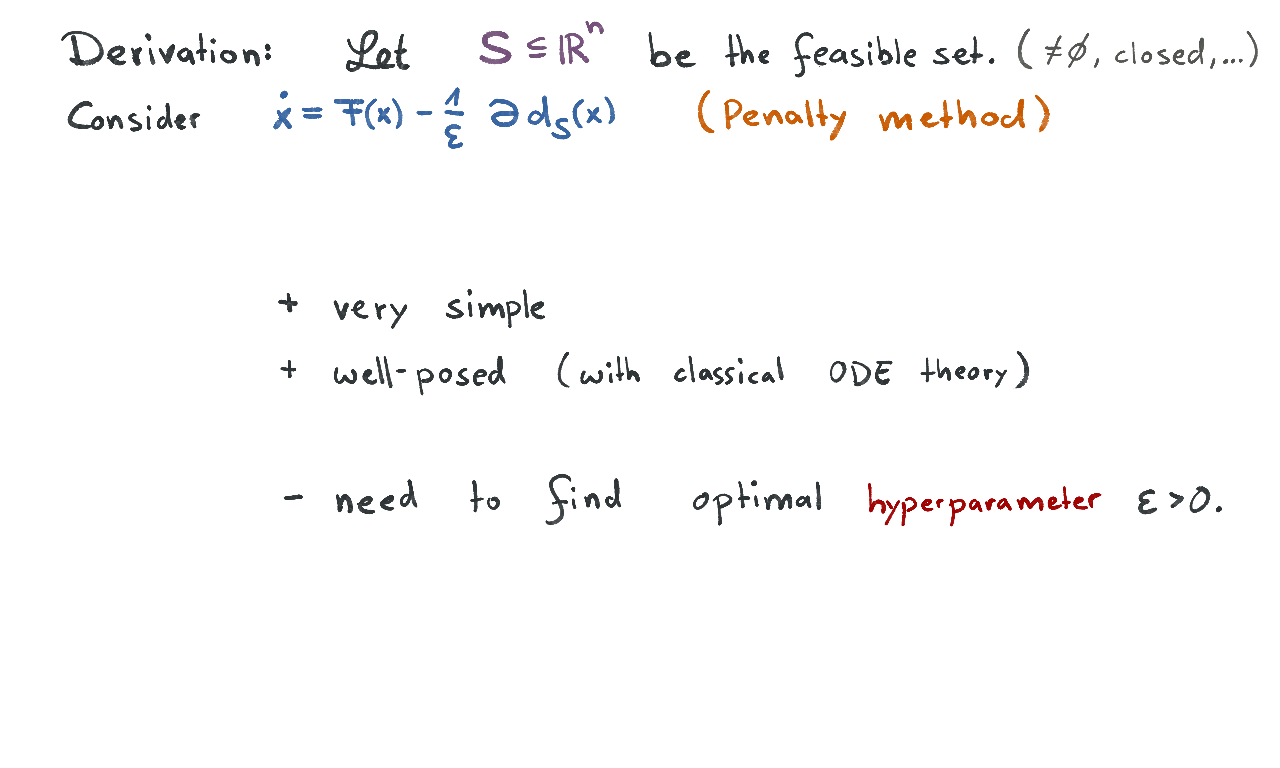 Derivation: Let S ⊆ ℝⁿ be the feasible set. (≠∅, closed,...)
Consider ẋ = F(x) - 1/ε ∂d_S(x) (Penalty method)
+ very simple
+ well-posed (with classical ODE theory)
- need to find optimal hyperparameter ε>0.